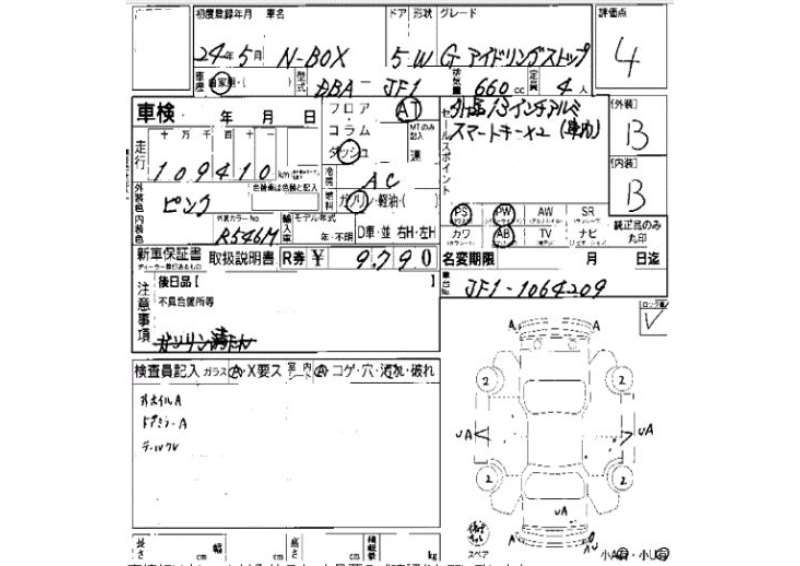 初度登録年月 車名 ドア 形状 グレード 評価点
24年5月 N-BOX 5-W G アイドリングストップ 4
車歴 自家用・( ) 型式 DBA-JF1 排気量 660cc 定員 4人
車検 年 月 日 フロア AT 外品13インチアルミ [外装]
コラム MTのみ記入 セールスポイント スマートキー×2 B
走行 十万千百十一 ダッシュ 速 [内装]
109410km 冷房 AC B
外装色 ピンク 色替車は色替と記入 燃料 ガソリン・軽油・( )
PS PW AW SR 純正品のみ丸印
内装色 外装カラーNo R546M 輸入車 モデル年式 年・不明 D車・並 右H・左H カワ AB TV ナビ
新車保証書 取扱説明書 R券 ¥ 9790 名変期限 月 日迄
ディーラー発行あるもの
後日品[ ] 車台No. JF1-1064209
注意事項 不具合箇所等
ガソリン満たん
検査員記入 ガラス A・X要ス 室内シート A・コゲ・穴・汚れ・破れ
ホイルA
A A
2 2
UA UA
2 2
UA
A
スペア 小A・小U
長さ cm 幅 cm 高さ cm 積載量 kg